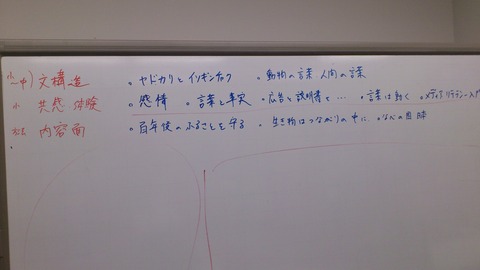 小～中) 文構造 。ヤドカリとイソギンチャク 。動物の言葉 人間の言葉
小 共感 体験 。感情 。言葉と事実 。広告と説明書と… 。言葉は動く 。メディアリテラシー入門
内容面 。百年後のふるさとを守る 。生き物はつながりの中に